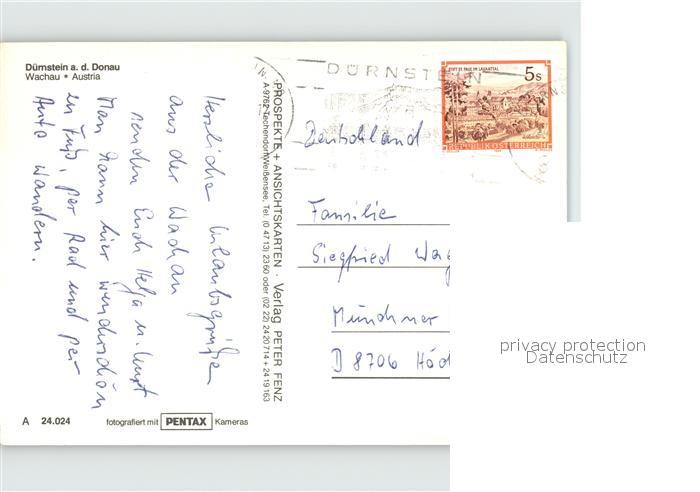 Dürnstein a. d. Donau
Wachau • Austria
Herzliche Urlaubsgrüße
aus der Wachau
senden Euch Helga u. Kurt
Man kann hier wunderschön
zu Fuß, per Rad und per
Auto wandern.
A 24.024
fotografiert mit PENTAX Kameras
PROSPEKTE + ANSICHTSKARTEN · Verlag PETER FENZ
A-9762 Techendorf/Weißensee, Tel. (0 47 13) 23 60 oder (02 22) 24 207 14 + 24 19 163
DÜRNSTEIN
STIFT ST. PAUL IM LAVANTTAL
5 S
REPUBLIK ÖSTERREICH
Deutschland
Familie
Siegfried
Münchner
D 8706
privacy protection
Datenschutz